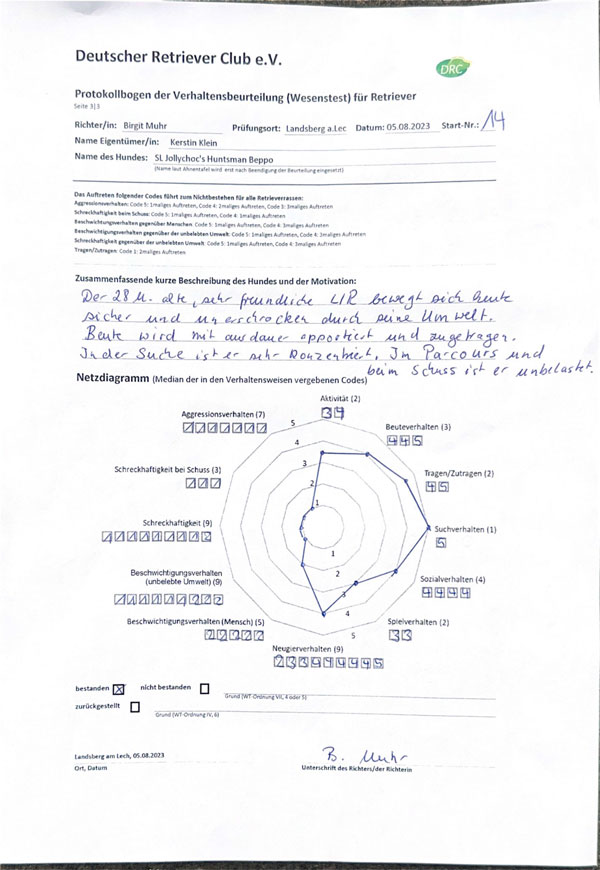 Deutscher Retriever Club e.V.
DRC
Protokollbogen der Verhaltensbeurteilung (Wesenstest) für Retriever
Seite 3|3
Richter/in: Birgit Muhr Prüfungsort: Landsberg a.Lec Datum: 05.08.2023 Start-Nr.: 14
Name Eigentümer/in: Kerstin Klein
Name des Hundes: SL Jollychoc's Huntsman Beppo
(Name laut Ahnentafel wird erst nach Beendigung der Beurteilung eingesetzt)
Das Auftreten folgender Codes führt zum Nichtbestehen für alle Retrieverrassen:
Aggressionsverhalten: Code 5: 1maliges Auftreten, Code 4: 2maliges Auftreten, Code 3: 3maliges Auftreten
Schreckhaftigkeit beim Schuss: Code 5: 1maliges Auftreten, Code 4: 1maliges Auftreten
Beschwichtigungsverhalten gegenüber Menschen: Code 5: 1maliges Auftreten, Code 4: 3maliges Auftreten
Beschwichtigungsverhalten gegenüber der unbelebten Umwelt: Code 5: 1maliges Auftreten, Code 4: 2maliges Auftreten
Schreckhaftigkeit gegenüber der unbelebten Umwelt: Code 5: 1maliges Auftreten, Code 4: 3maliges Auftreten
Tragen/Zutragen: Code 1: 2maliges Auftreten
Zusammenfassende kurze Beschreibung des Hundes und der Motivation:
Der 28 M. alte, sehr freundliche LR bewegt sich heute
sicher und unerschrocken durch seine Umwelt.
Beute wird mit ausdauer apportiert und zugetragen.
In der Suche ist er sehr konzentriert. Im Parcours und
beim Schuss ist er unbelastet.
Netzdiagramm (Median der in den Verhaltensweisen vergebenen Codes)
Aktivität (2)
3 4
Aggressionsverhalten (7)
1 1 1 1 1 1 1
Beuteverhalten (3)
4 4 5
Schreckhaftigkeit bei Schuss (3)
1 1 1
Tragen/Zutragen (2)
4 5
Schreckhaftigkeit (9)
1 1 1 1 1 1 1 1 2
Suchverhalten (1)
5
Beschwichtigungsverhalten
(unbelebte Umwelt) (9)
Sozialverhalten (4)
4 4 4 4
Beschwichtigungsverhalten (Mensch) (5)
2 2 2 2 2
Spielverhalten (2)
3 3
Neugierverhalten (9)
2 3 3 4 4 4 4 4 5
5
4
3
2
1
1
2
3
4
5
bestanden X nicht bestanden
Grund (WT-Ordnung VII, 4 oder 5)
zurückgestellt
Grund (WT-Ordnung IV, 6)
Landsberg am Lech, 05.08.2023
B. Muhr
Ort, Datum
Unterschrift des Richters/der Richterin